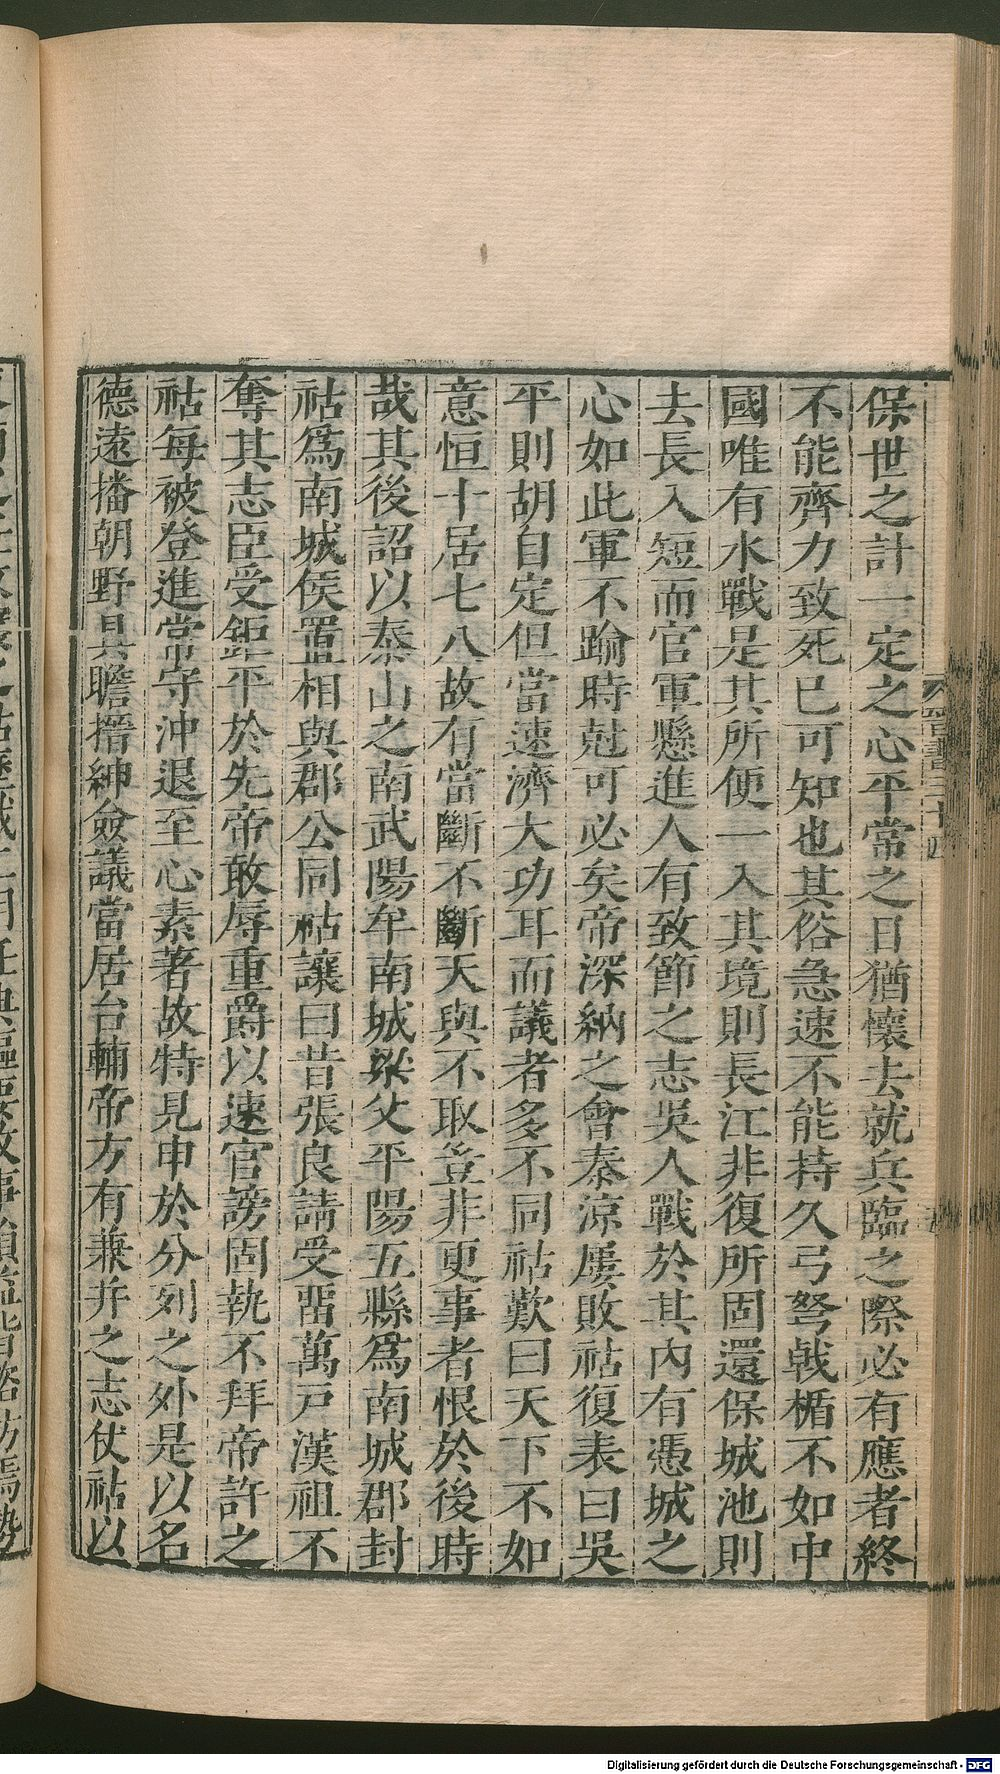 保世之計一定之心平常之日猶懷去就兵臨之際必有應者終
不能齊力致死已可知也其俗急速不能持久弓弩戟楯不如中
國唯有水戰是其所便一入其境則長江非復所固還保城池則
去長入短而官軍懸進人有致節之志吳人戰於其內有憑城之
心如此軍不踰時尅可必矣帝深納之會秦涼屢敗祜復表曰吳
平則胡自定但當速濟大功耳而議者多不同祜歎曰天下不如
意恒十居七八故有當斷不斷天與不取豈非更事者恨於後時
哉其後詔以泰山之南武陽牟南城梁父平陽五縣爲南城郡封
祜爲南城侯置相與郡公同祜讓曰昔張良請受畱萬戸漢祖不
奪其志臣受鉅平於先帝敢辱重爵以速官謗固執不拜帝許之
祜每被登進常守沖退至心素著故特見申於分列之外是以名
德遠播朝野具瞻搢紳僉議當居台輔帝方有兼并之志仗祜以
晉書三十四
Digitalisierung gefördert durch die Deutsche Forschungsgemeinschaft - DFG